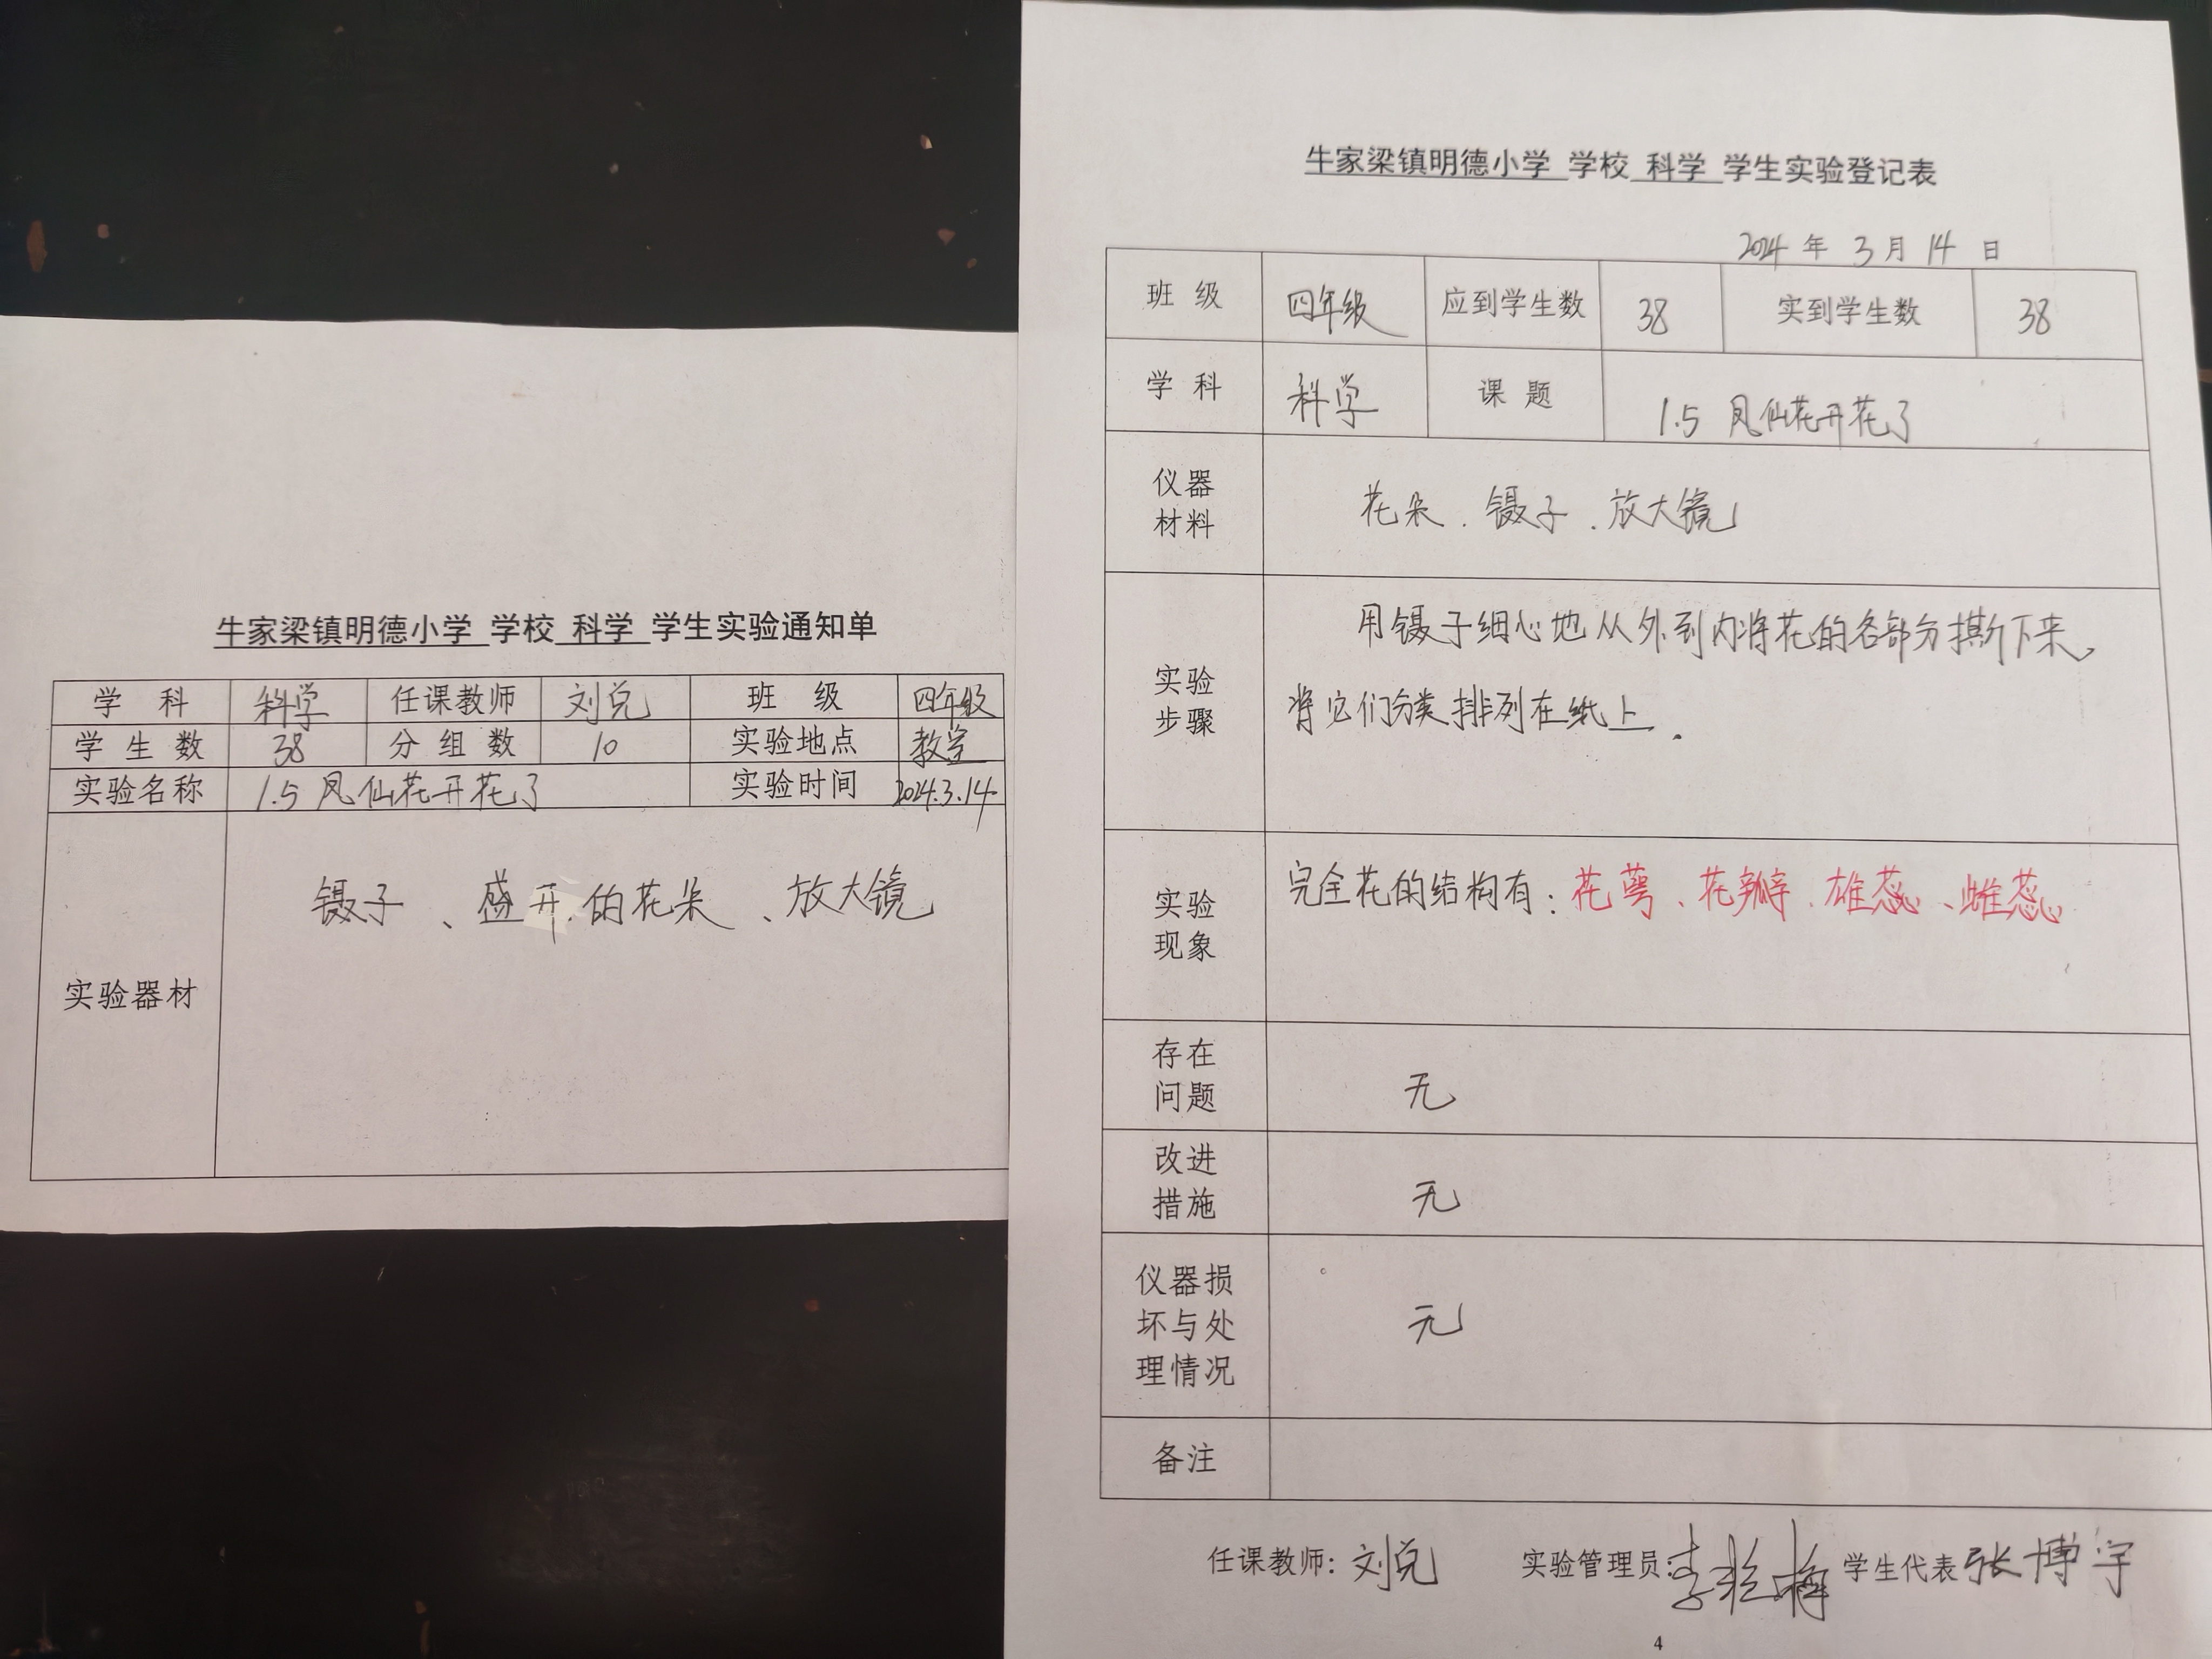 牛家梁镇明德小学 学校 科学 学生实验通知单
学 科 科学 任课教师 刘兑 班 级 四年级
学 生 数 38 分 组 数 10 实验地点 教室
实验名称 1.5 凤仙花开花了 实验时间 2024.3.14
实验器材 镊子、盛开的花朵、放大镜
牛家梁镇明德小学 学校 科学 学生实验登记表
2024 年 3 月 14 日
班 级 四年级 应到学生数 38 实到学生数 38
学 科 科学 课 题 1.5 凤仙花开花了
仪器
材料
花朵、镊子、放大镜
实验
步骤
用镊子细心地从外到内将花的各部分撕下来,
将它们分类排列在纸上.
实验
现象
完全花的结构有:花萼、花瓣、雄蕊、雌蕊
存在
问题
无
改进
措施
无
仪器损
坏与处
理情况
无
备注
任课教师: 刘兑 实验管理员: 李 梅 学生代表 张博宇
4